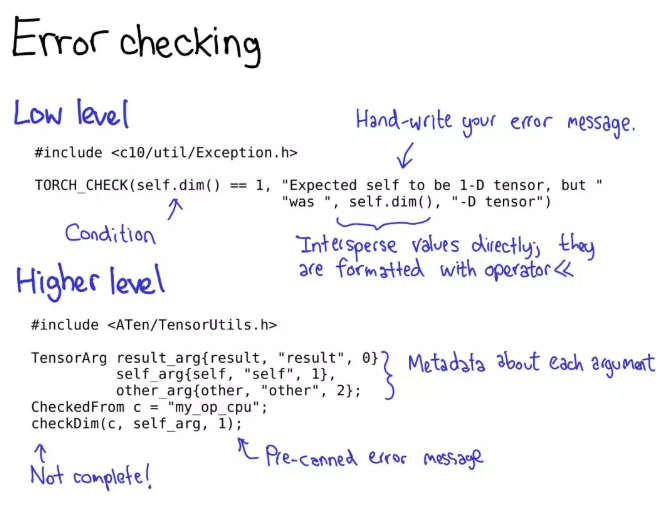 Error checking
Low level
Hand-write your error message.
#include <c10/util/Exception.h>
TORCH_CHECK(self.dim() == 1, "Expected self to be 1-D tensor, but "
"was ", self.dim(), "-D tensor")
Condition
Intersperse values directly; they
are formatted with operator<<
Higher level
#include <ATen/TensorUtils.h>
TensorArg result_arg{result, "result", 0}
self_arg{self, "self", 1},
other_arg{other, "other", 2};
Metadata about each argument
CheckedFrom c = "my_op_cpu";
checkDim(c, self_arg, 1);
Pre-canned error message
Not complete!